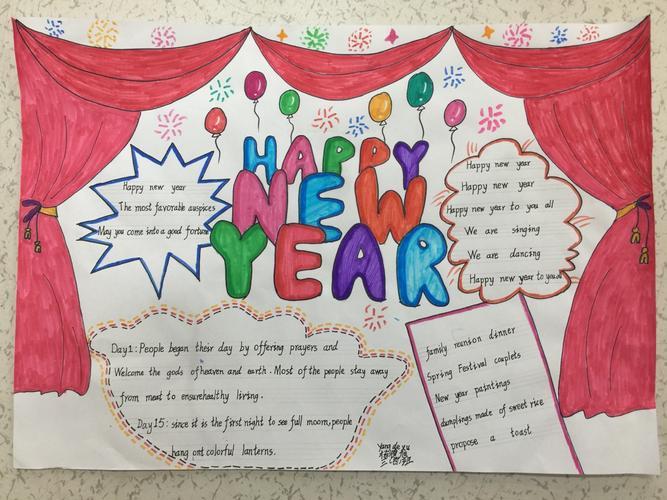 HAPPY
NEW
YEAR
Happy new year
The most favorable auspices
May you come into a good fortune
Happy new year
Happy new year
Happy new year to you all
We are singing
We are dancing
Happy new year to you all
Day1: People began their day by offering prayers and
Welcome the gods of heaven and earth. Most of the people stay away
from meat to ensurehealthy living.
Day 15: since it is the first night to see full moorn, people
hang ont colorful lanterns.
family reunion dinner
Spring Festival couplets
New year paintings
dumplings made of sweet rice
propose a toast